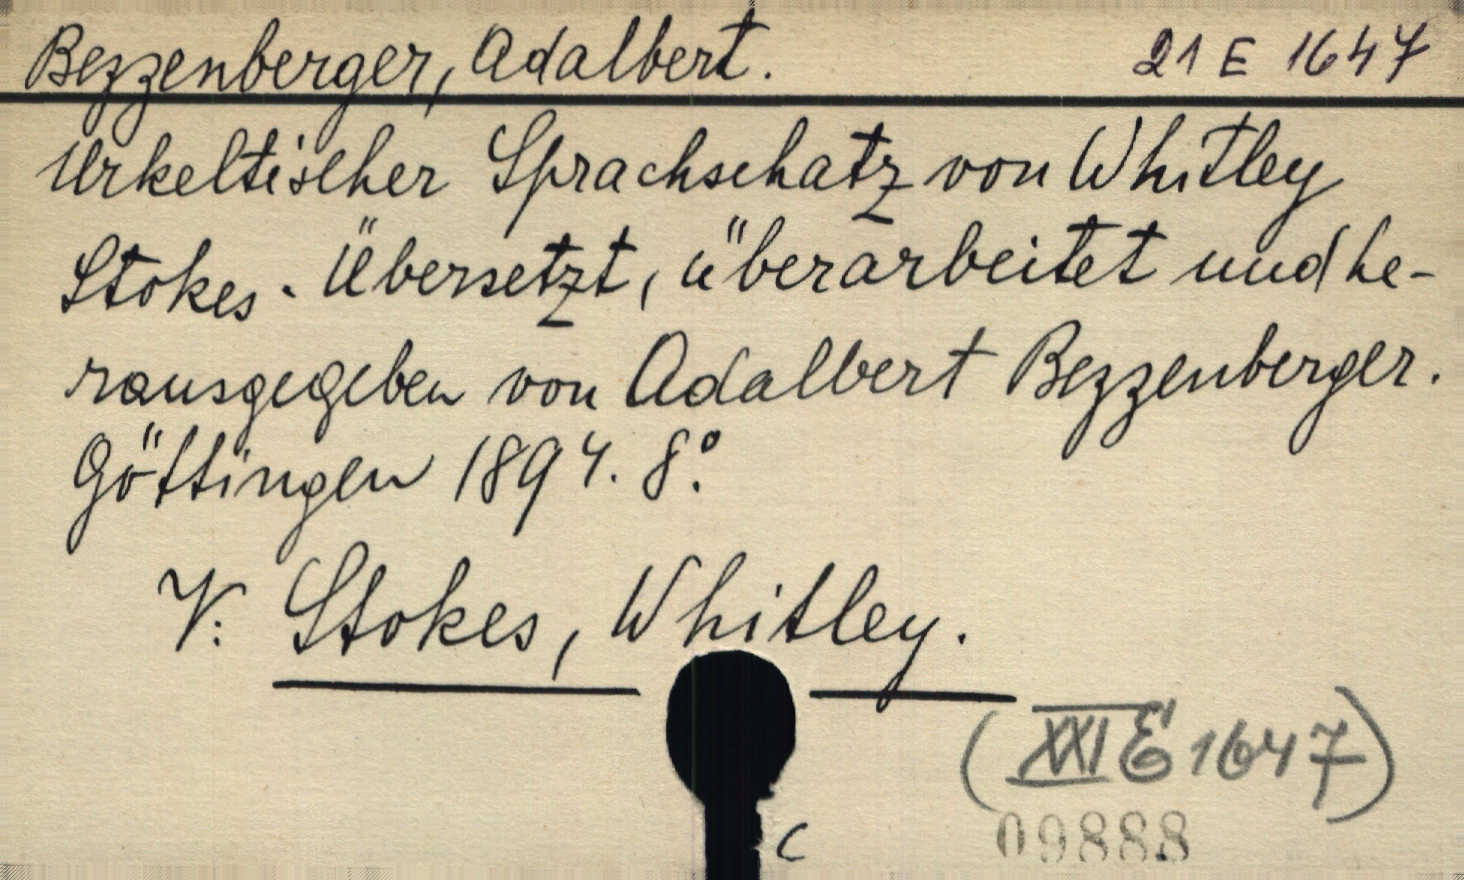 Bezzenberger, Adalbert. 21 E 1647
Urkeltischer Sprachschatz von Whitley
Stokes. Übersetzt, überarbeitet und he-
rausgegeben von Adalbert Bezzenberger.
Göttingen 1894. 8°.
V. Stokes, Whitley.
(XXI E 1647)
C 09888